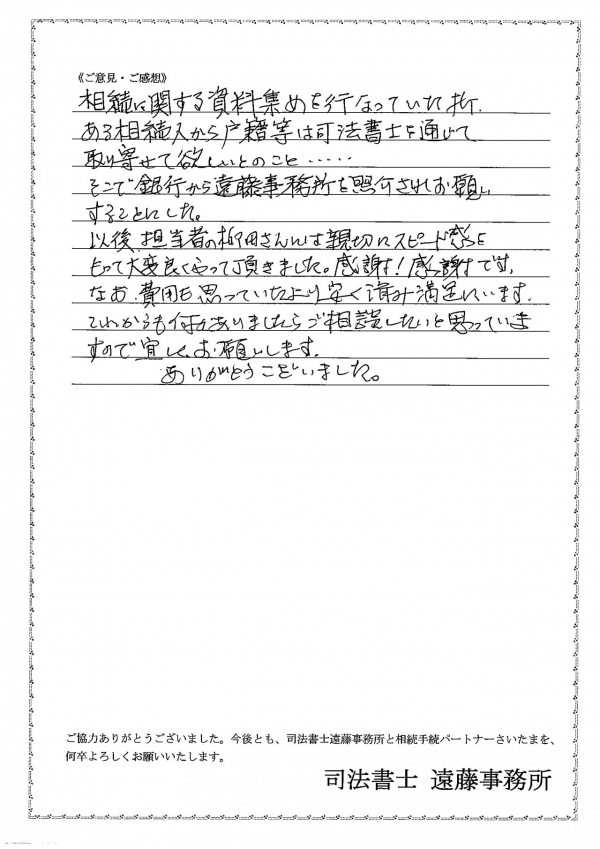 《ご意見・ご感想》
相続に関する資料集めを行なっていた折、
ある相続人から戸籍等は司法書士を通じて
取り寄せて欲しいとのこと……
そこで銀行から遠藤事務所を照介されお願い
することにした。
以後、担当者の柳田さんには親切にスピード感を
もって大変良くやって頂きました。感謝!感謝です。
なお、費用も思っていたより安く済み満足しています。
これからも何かありましたらご相談したいと思っていま
すので宜しくお願いします。
ありがとうございました。
ご協力ありがとうございました。今後とも、司法書士遠藤事務所と相続手続パートナーさいたまを、
何卒よろしくお願いいたします。
司法書士 遠藤事務所